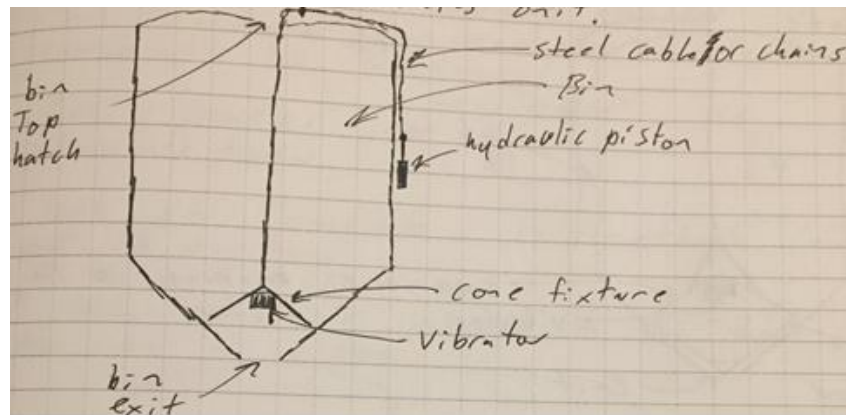 unit.
steel cable/or chains
Bin
bin
Top
hatch
hydraulic piston
cone fixture
Vibrator
bin
exit